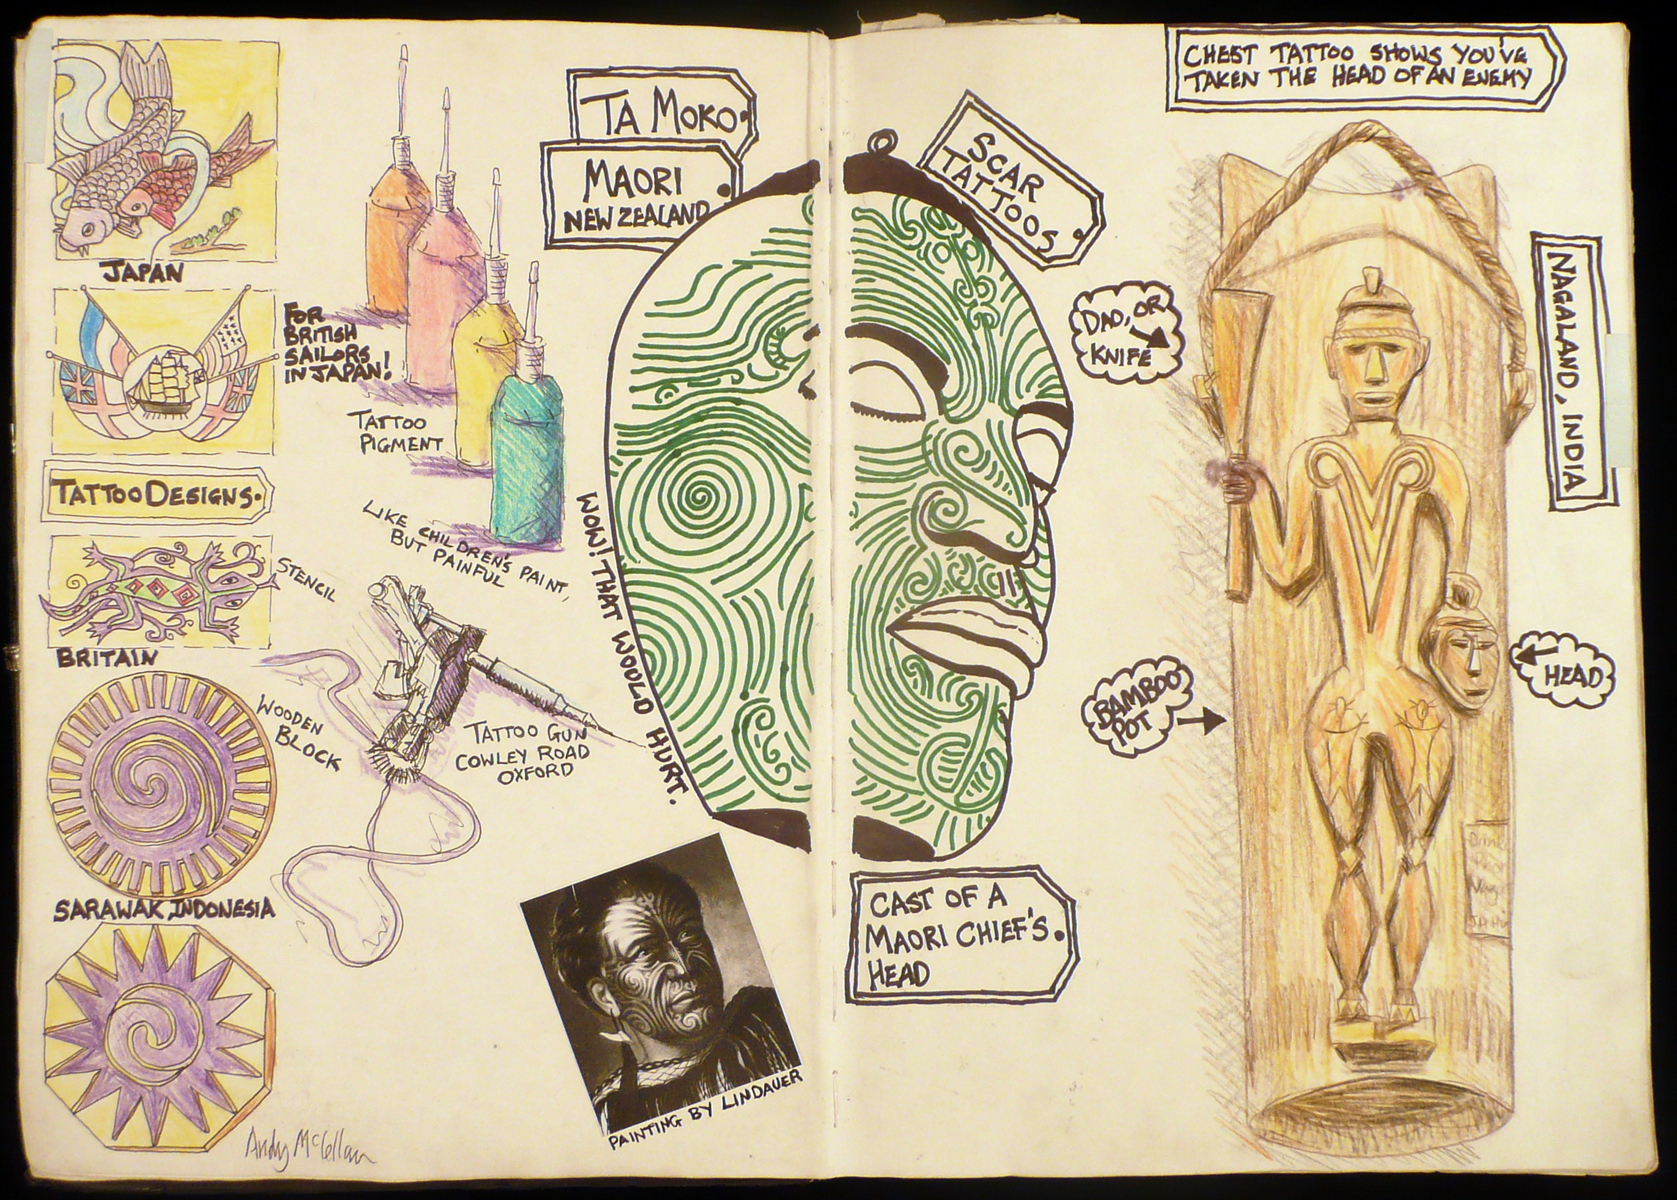 JAPAN
FOR
BRITISH
SAILORS
IN JAPAN!
TATTOO DESIGNS.
STENCIL
BRITAIN
WOODEN
BLOCK
SARAWAK, INDONESIA
Andy McClellan
TATTOO
PIGMENT
LIKE CHILDREN'S PAINT,
BUT PAINFUL
TATTOO GUN
COWLEY ROAD
OXFORD
TA MOKO
MAORI
NEW ZEALAND
WOW! THAT WOULD HURT.
PAINTING BY LINDAUER
SCAR
TATTOOS
CAST OF A
MAORI CHIEF'S
HEAD
CHEST TATTOO SHOWS YOU'VE
TAKEN THE HEAD OF AN ENEMY
DAO, OR
KNIFE
NAGALAND, INDIA
BAMBOO
POT
HEAD